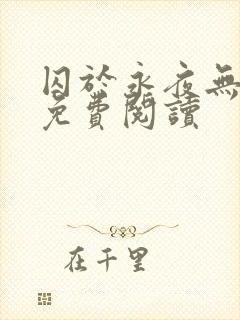 囚於永夜無
免費閱讀
在千里